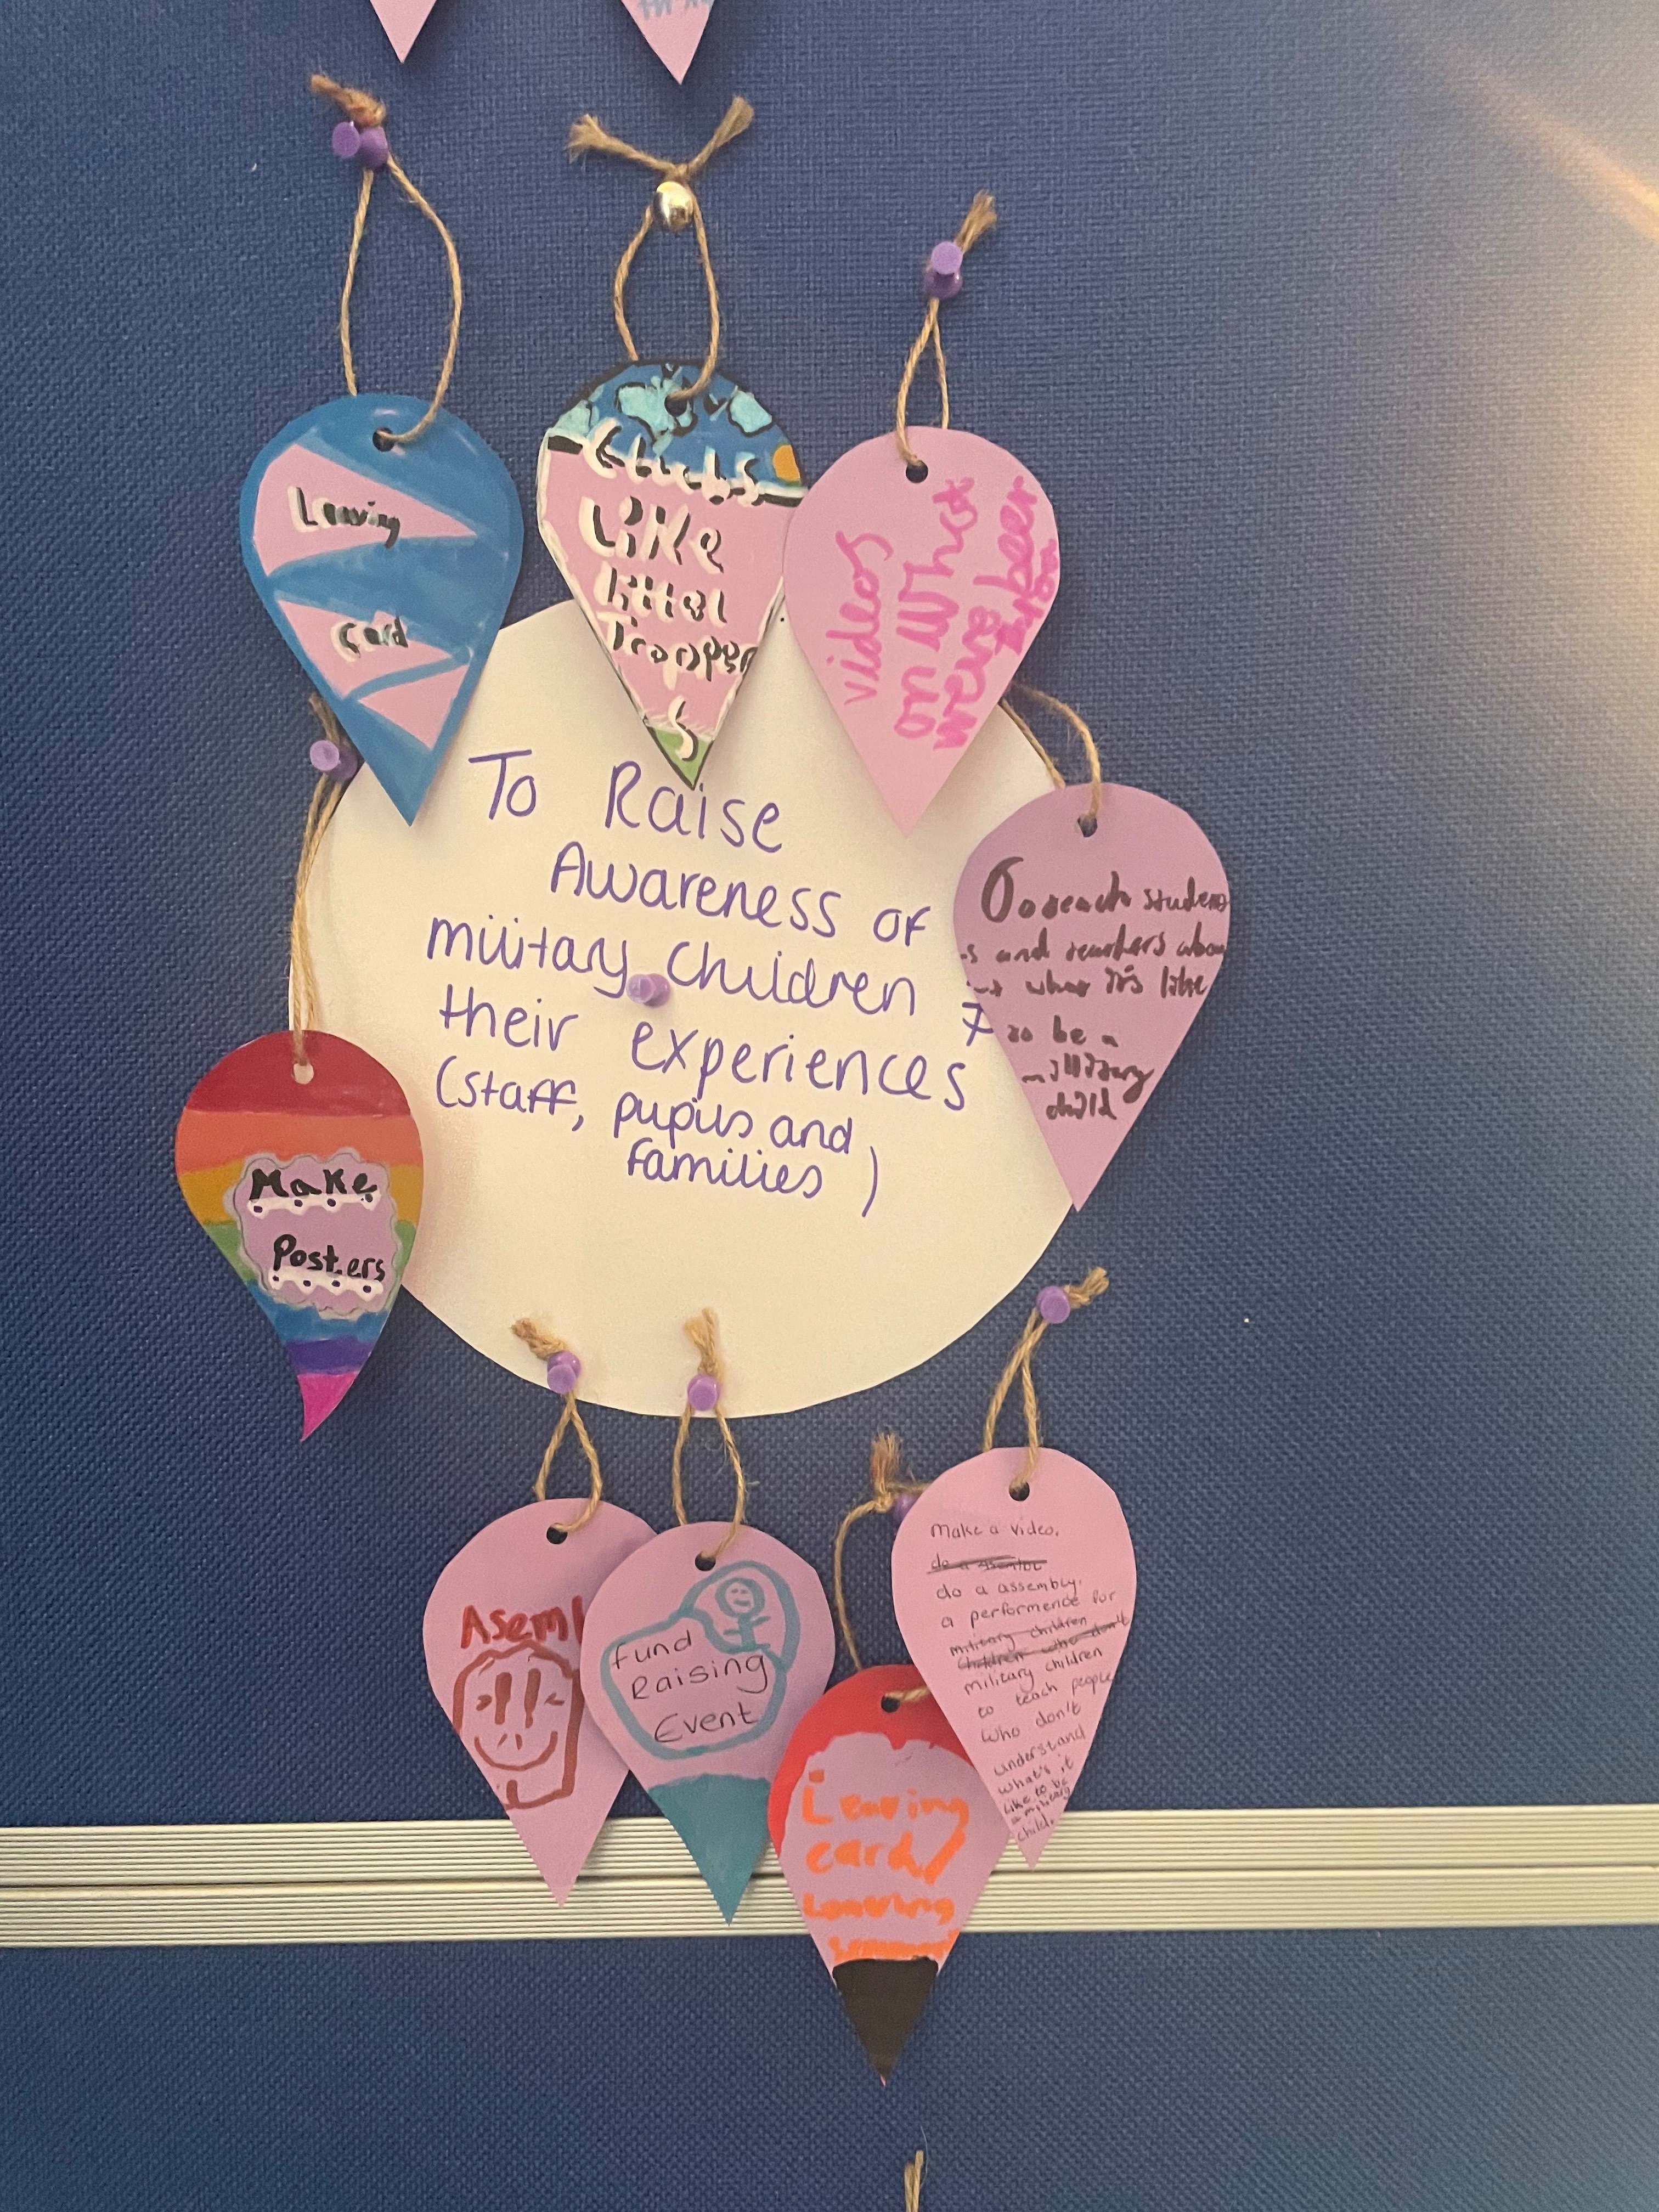 Leaving
Card
Clubs
Like
littel
Trooper
s
videos
on What
mean
To Raise
Awareness of
military Children +
their experiences
(staff, pupils and
families)
students
s and teachers abou
ut what it's like
to be a
military
child
Make
Posters
Aseml
Fund
Raising
Event
Leaving
card/
Leaving
Make a video.
do a assembly.
a performence for
military children
children who don't
military children
to teach people
who don't
understand
what's it
like to be
a military
child.